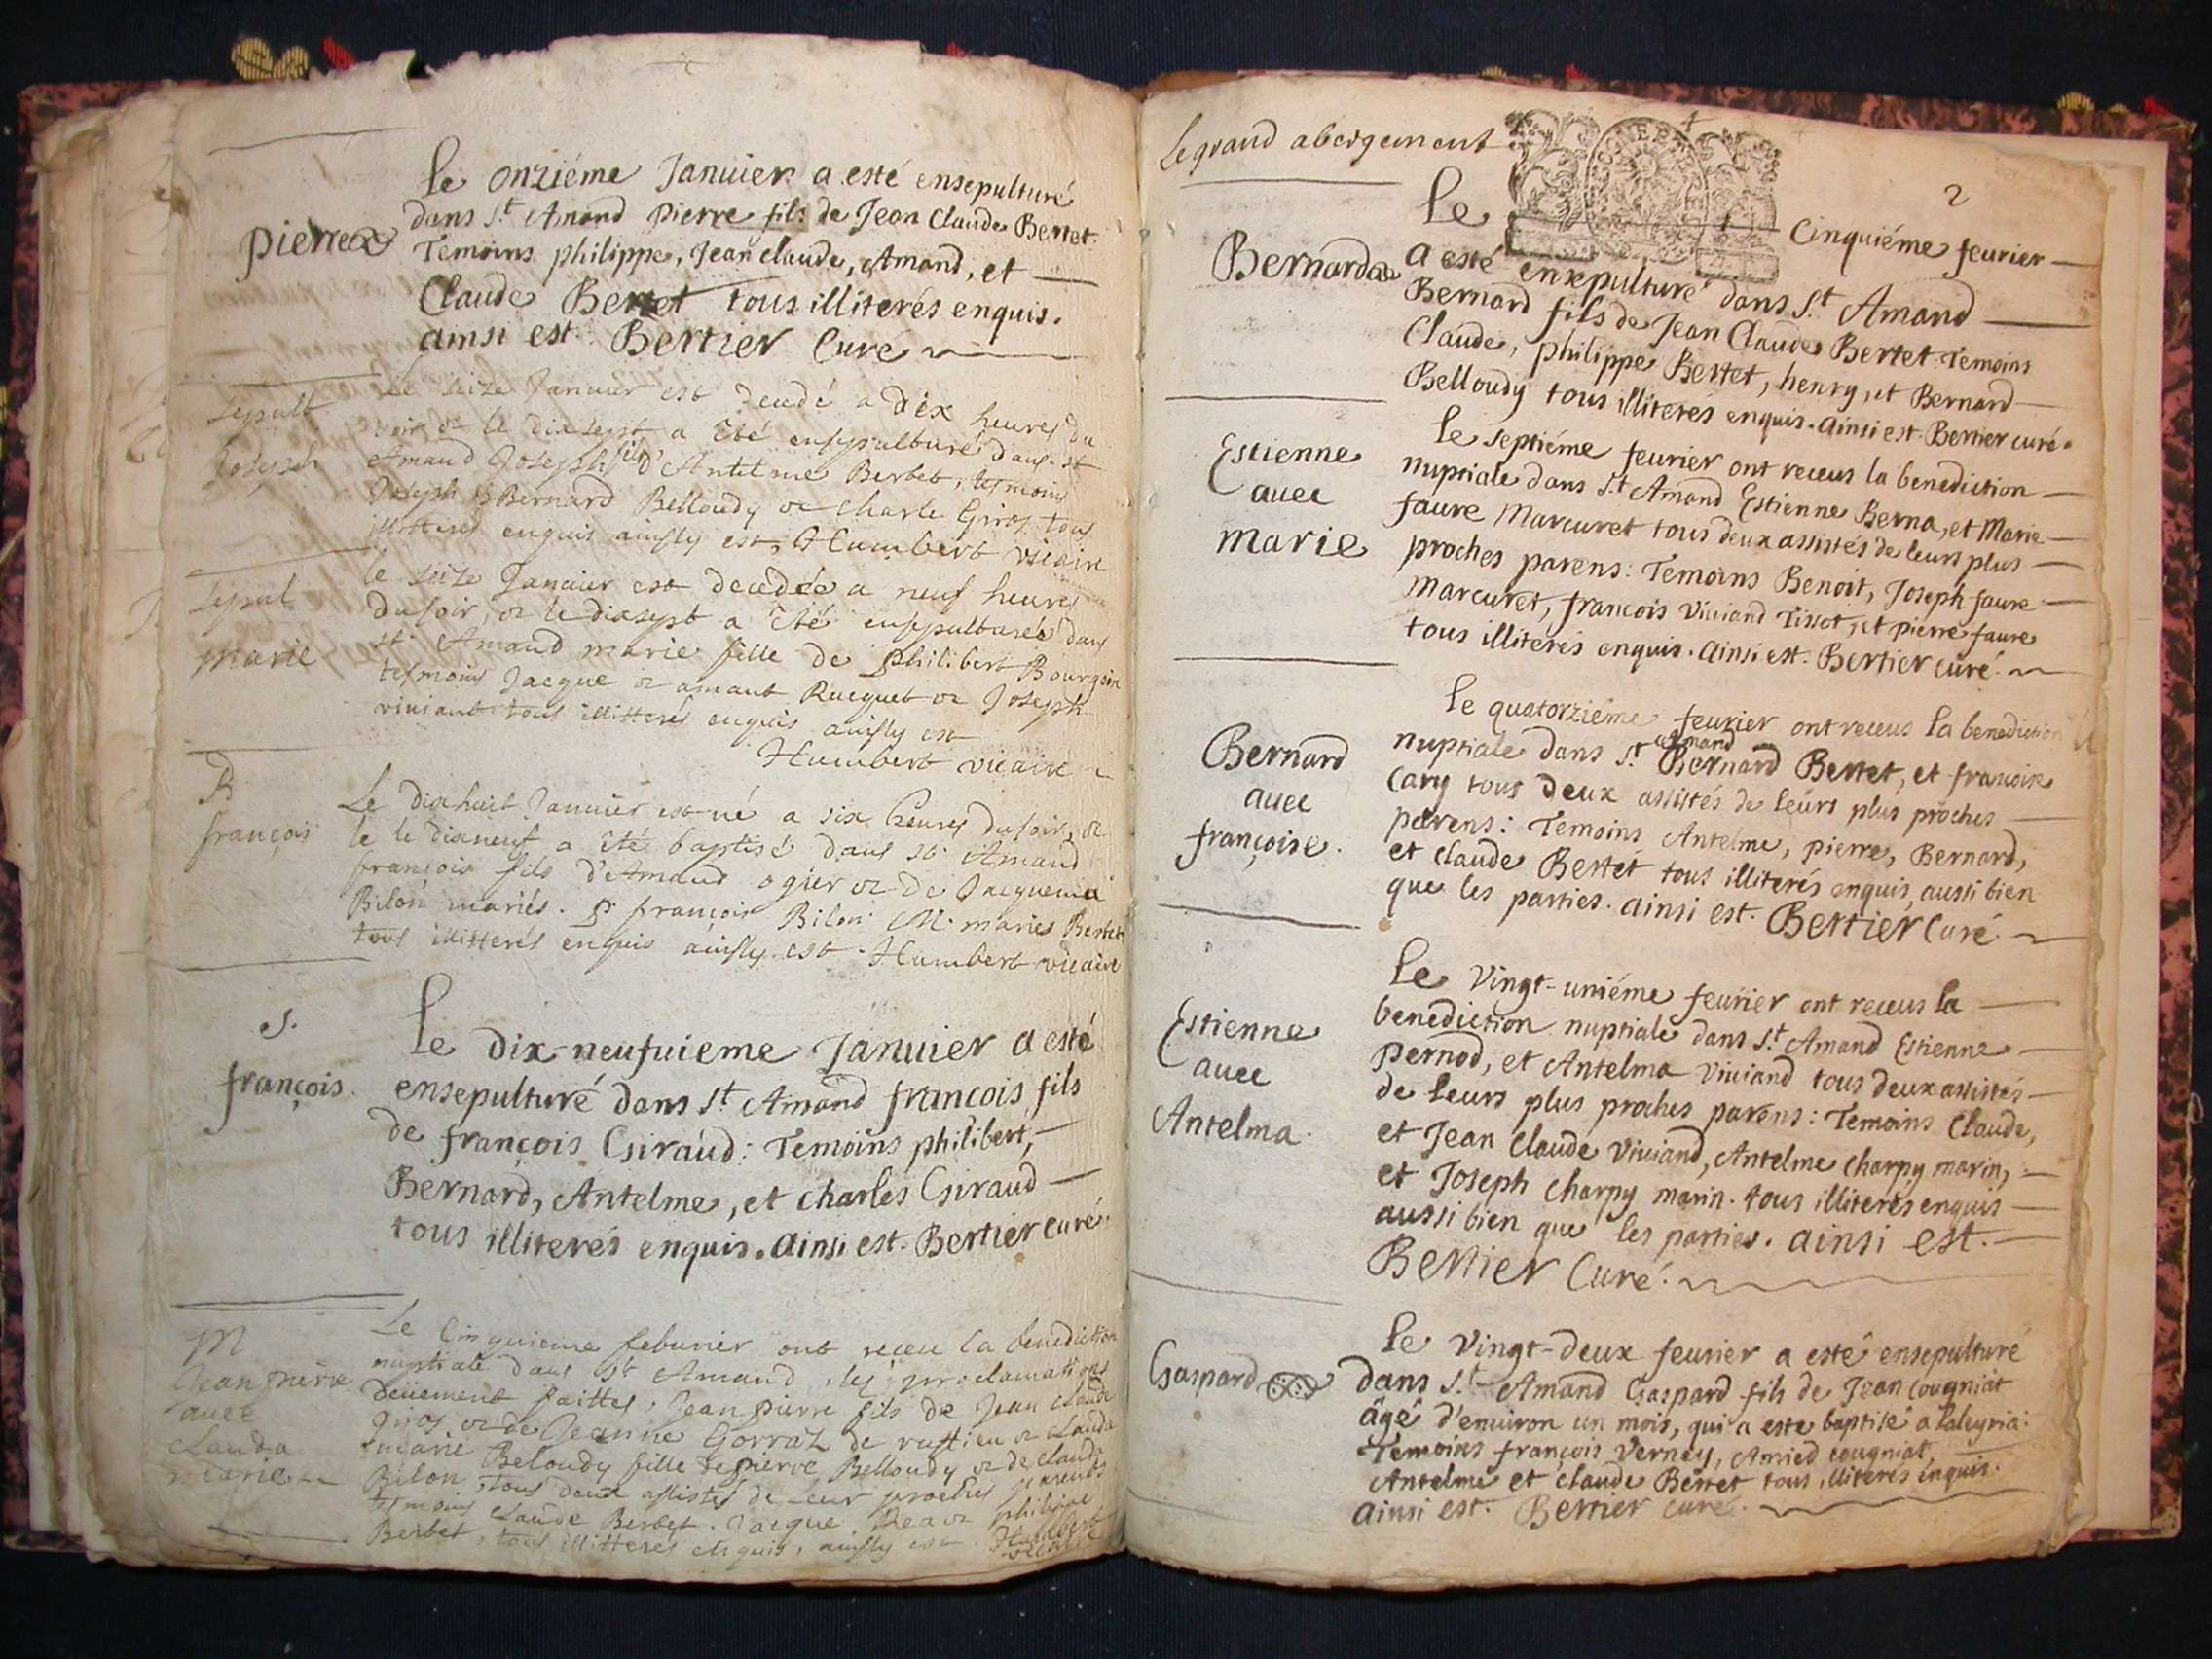 Pierre
Le onziéme Januier a esté ensepulturé
dans S.t Amand pierre fils de Jean Claude Bertet.
Temoins philippe, Jean claude, Amand, et
Claude Bertet tous illiterés enquis.
ainsi est. Bertier Curé
sepult
Joseph
Le seize Januier est decedé a dix heures du
soir & le dixsept a été ensepulturé dans st
Amand Joseph fils d'Antelme Berbet, tesmoins
Joseph & Bernard Belloudy & Charle Giros tous
illitterés enquis ainsy est, Humbert vicaire
sepul
marie
le seize Januier est decedée a neuf heures
du soir, & le dixsept a été ensepulturée dans
st Amand marie fille de philibert Bourgoin
tesmoins Jacque & amant Rucquet & Joseph
viuiant tous illitterés enquis ainsy est
Humbert vicaire
B
françois
Le dixhuit Januier est né a six heures du soir, &
le le dixneuf a été baptisé dans st Amand
françois fils d'Amand ogier & de Jacquema
Bilon mariés. P. françois Bilon M. maries Berbet
tous illitterés enquis ainsy est. Humbert vicaire
S.
françois.
Le dix-neufuieme Januier a esté
ensepulturé dans S.t Amand francois fils
de françois Giraud: Temoins philibert,
Bernard, Antelme, et charles Giraud
tous illiterés enquis. ainsi est. Bertier curé.
M
Jean pierre
auec
Clauda
marie
Le Cinquieme feburier ont receu la benediction
nuptiale dans st Amand, les proclamations
deüement faittes, Jean pierre fils de Jean claude
giros & de Jeanne Gorraz de ruffieu & Clauda
marie Beloudy fille de pierre Belloudy & de claudi
Bilon, tous deux assistés de leur proches parents
tesmoins Claude Berbet. Jacque & philippe
Berbet, tous illitterés enquis, ainsy est. Humbert
vicaire
Le grand abergement
2
Bernard
Le Cinquiéme feurier
a esté ensepulturé dans S.t Amand
Bernard fils de Jean Claude Bertet. Temoins
Claude, philippe Bertet, henry, et Bernard
Belloudy tous illiterés enquis. ainsi est. Bertier curé.
Estienne
auec
Marie
Le septiéme feurier ont receus la benediction
nuptiale dans S.t Amand Estienne Berna, et Marie
faure Marcuret tous deux assistés de leurs plus
proches parens: Temoins Benoit, Joseph faure
Marcuret, francois Viuiand Tissot, et pierre faure
tous illiterés enquis. ainsi est. Bertier curé.
Bernard
auec
françoise.
Le quatorziéme feurier ont receus la benediction
nuptiale dans S.t Amand Bernard Bertet, et francoise
Cary tous deux assistés de leurs plus proches
parens: Temoins Antelme, pierre, Bernard,
et claude Bertet tous illiterés enquis, aussi bien
que les parties. ainsi est. Bertier Curé.
Estienne
auec
Antelma.
Le Vingt-uniéme feurier ont receus la
benediction nuptiale dans S.t Amand Estienne
Pernod, et Antelma Viuiand tous deux assistés
de leurs plus proches parens: Temoins Claude,
et Jean Claude Viuiand, Antelme charpy marin,
et Joseph charpy marin. tous illiterés enquis
aussi bien que les parties. ainsi est.
Bertier Curé.
Gaspard
Le Vingt-deux feurier a esté ensepulturé
dans S.t Amand Gaspard fils de Jean Cougniat
âgé d'enuiron un mois, qui a este baptisé a laleyria:
Temoins françois Verney, Amied cougniat,
Antelme et claude Bertet tous illiterés enquis.
Ainsi est. Bertier curé.